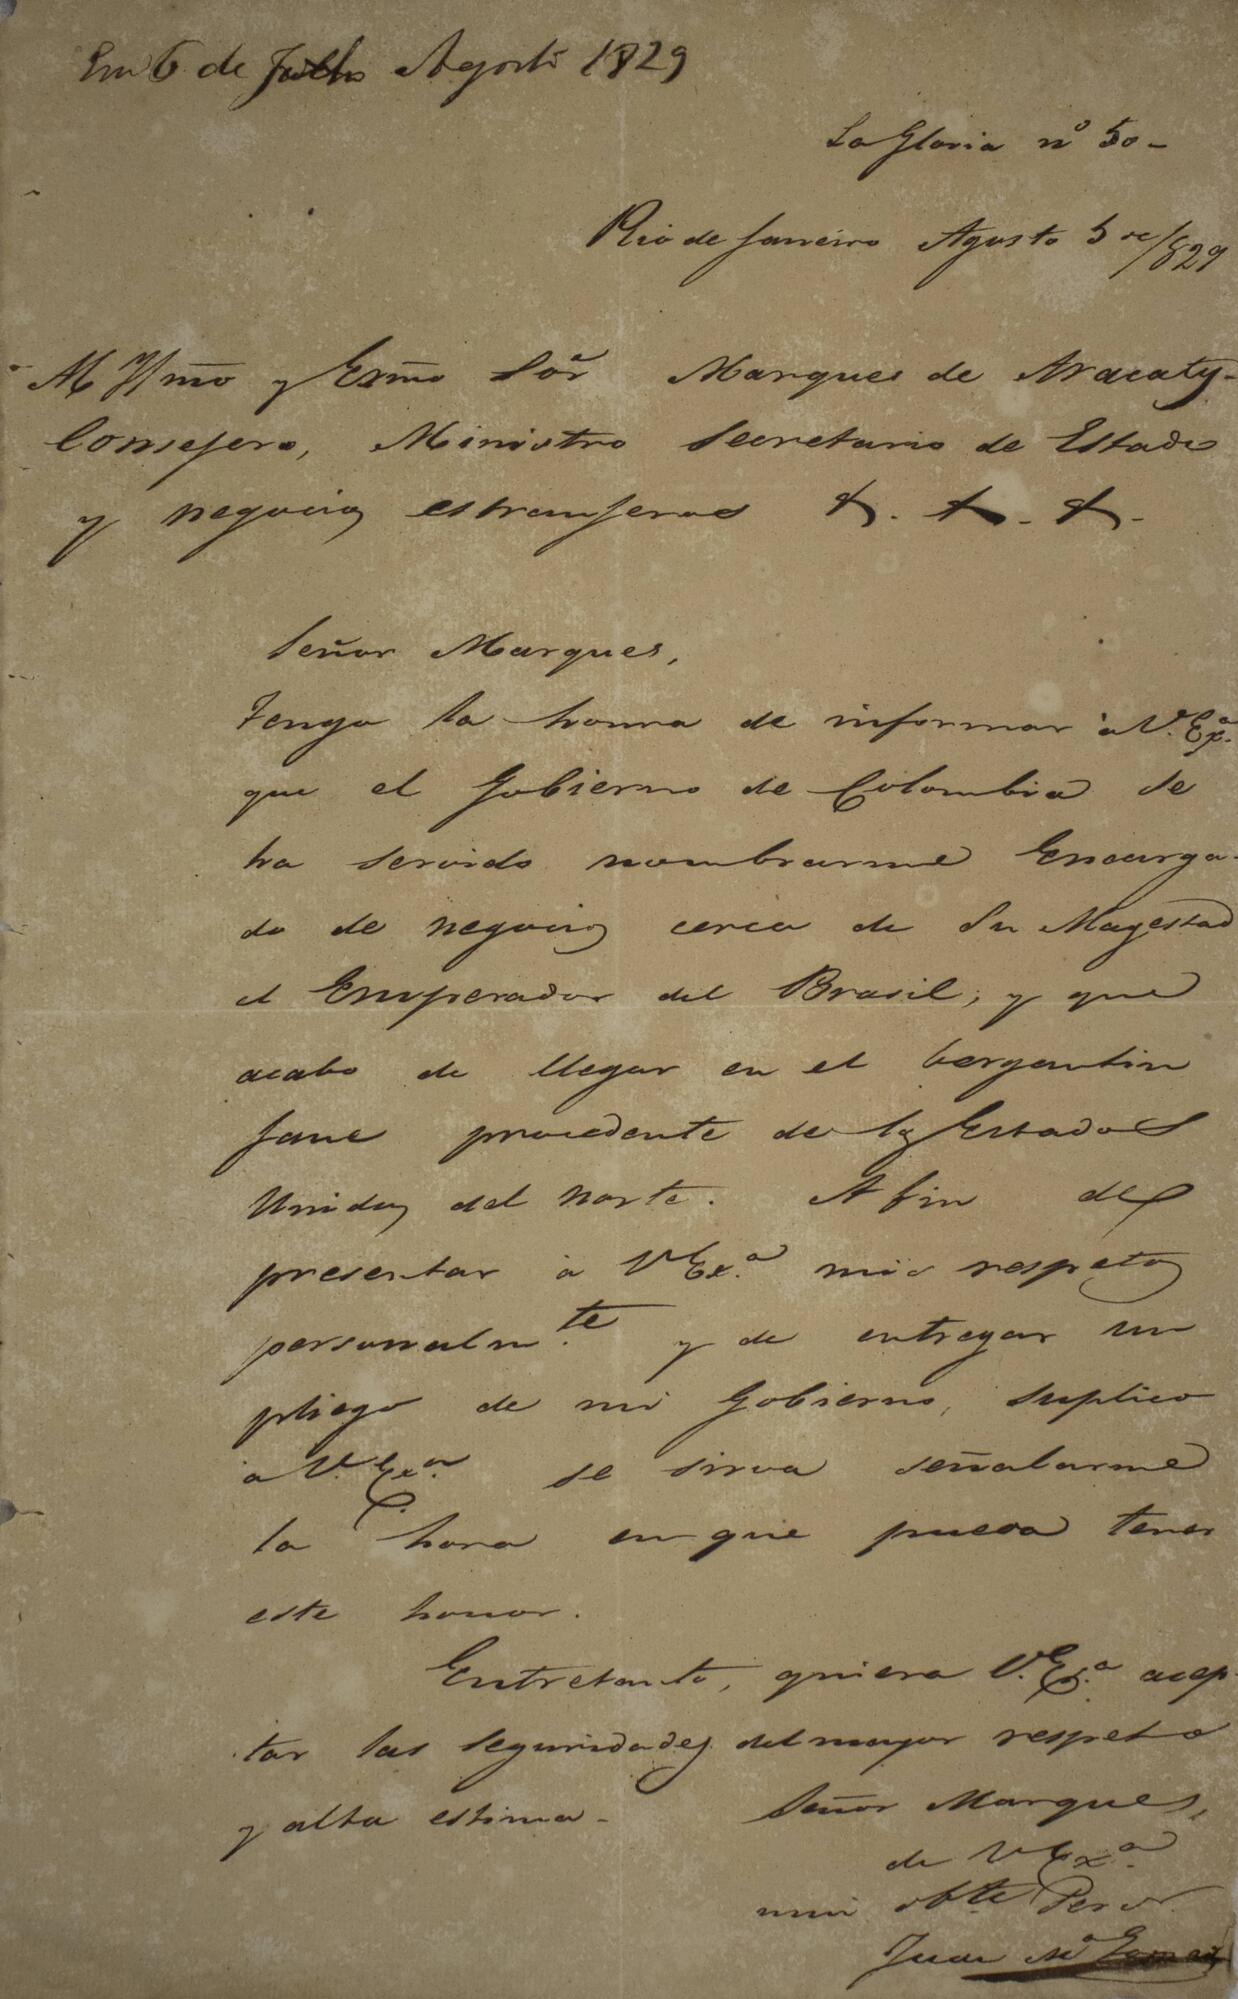 Em 6 de Julho Agosto 1829
La Gloria nº 50-
Rio de Janeiro Agosto 5 de/829
M Yllmo y Exmo Sor Marques de Aracaty-
Consejero, Ministro Secretario de Estado
y negocios estranjeros &. &. &.
Señor Marques,
Tengo la honra de informar à V. Exa.
que el Gobierno de Colombia se
ha servido nombrarme Encarga-
do de negocios cerca de Su Magestad
el Emperador del Brasil; y que
acabo de llegar en el bergantin
Jane procedente de los Estados
Unidos del Norte. A fin de
presentar à V Exa. mis respetos
personalmte. y de entregar un
pliego de mi Gobierno, suplico
à V. Exa. se sirva señalarme
la hora en que pueda tener
este honor.
Entretanto, quiera V. Exa. acep-
tar las seguridades del mayor respeto
y alta estima- Señor Marques,
de V Exa.
mui obte Servor
Juan Ma Gomez